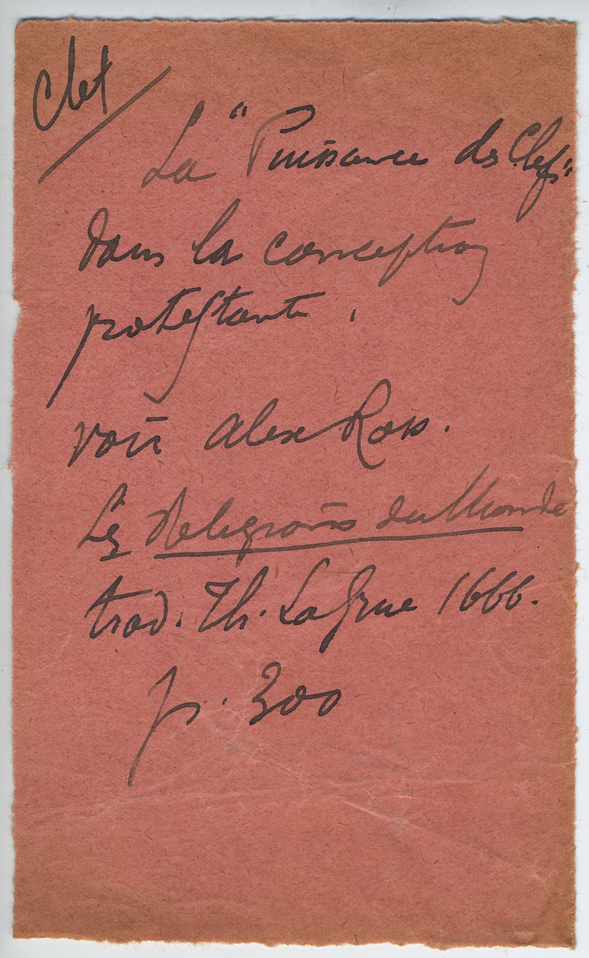 Clef
La "Puissance des Clefs"
dans la conception
protestante.
voir Alex Ross.
Les Religions du Monde
trad. Th. La Grue 1666.
p. 300